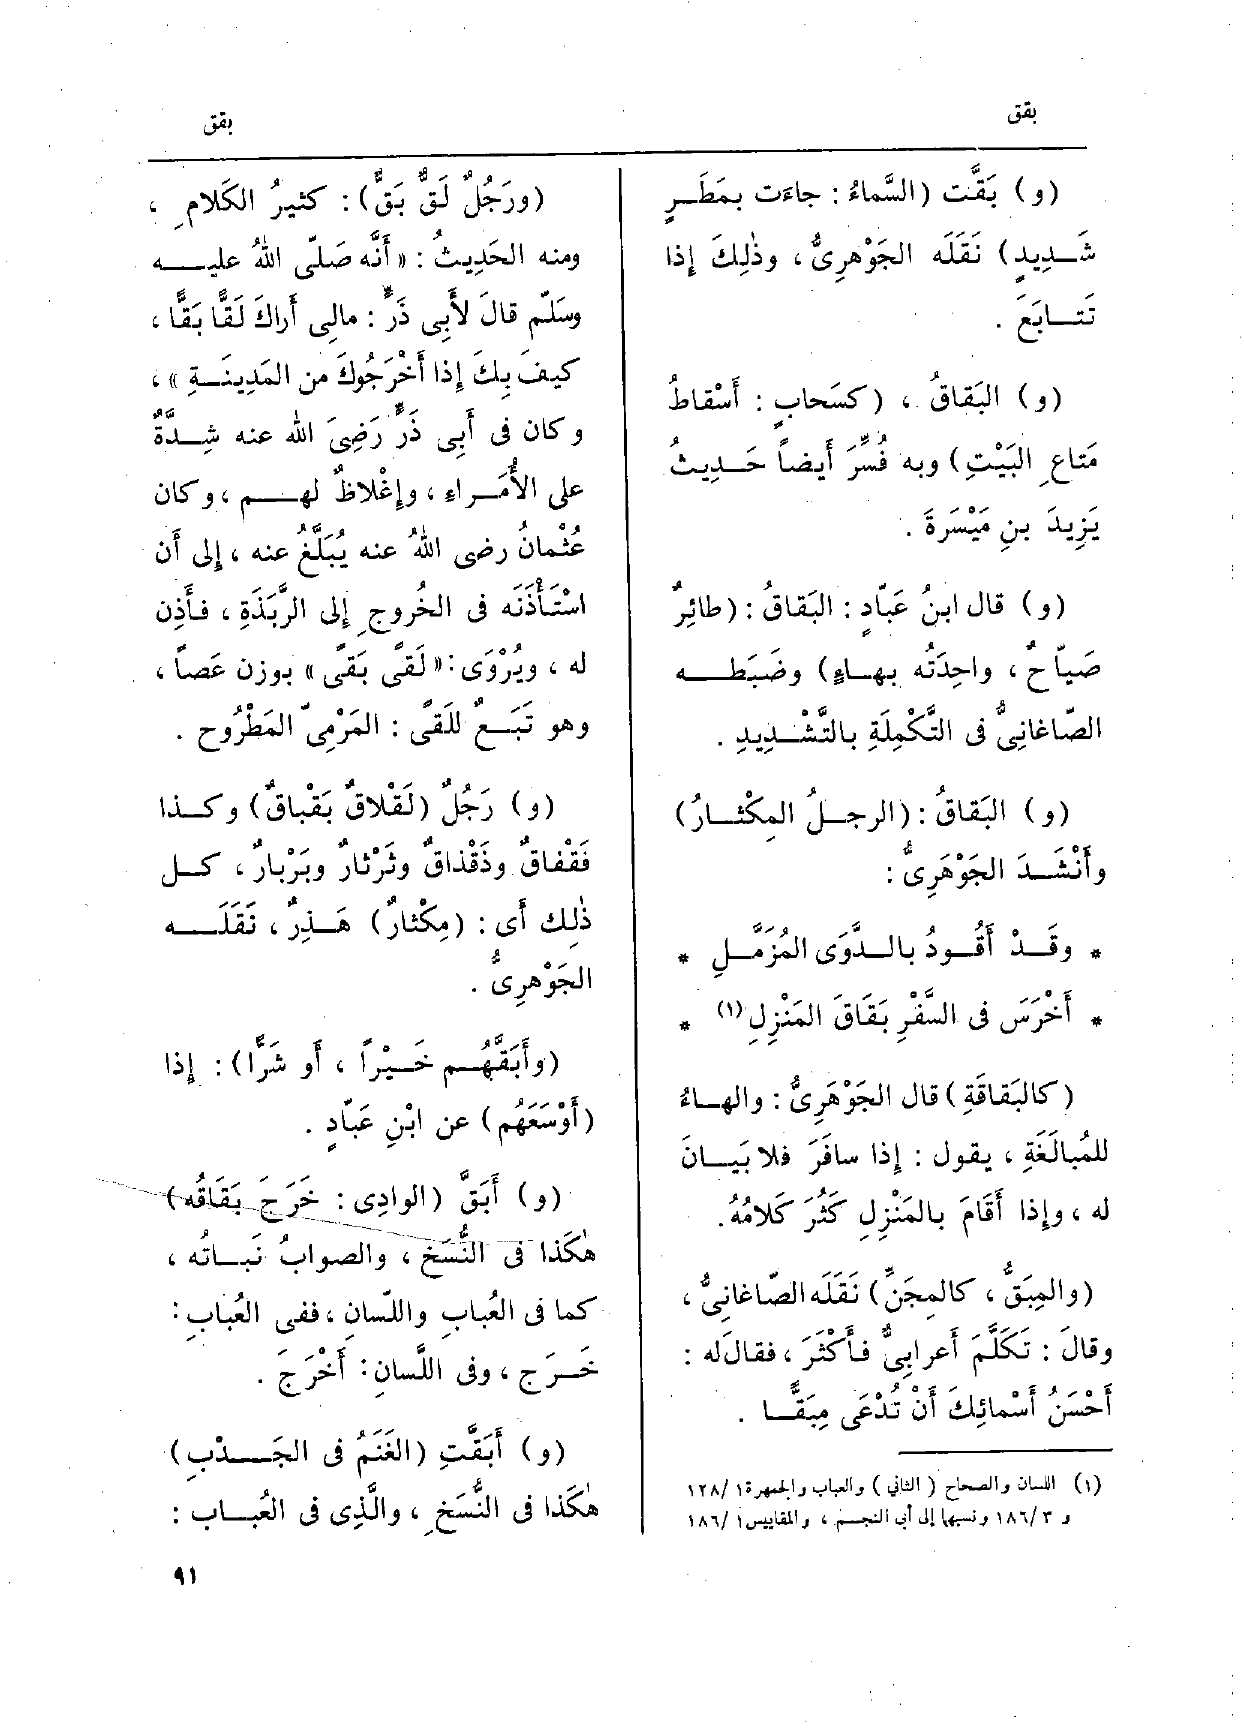 بقق
بقق
(و) بَقَّت (السَّماءُ : جاءَت بمَطَرٍ
شَدِيدٍ) نَقَلَه الجَوْهَرِىُّ ، وذٰلِكَ إذا
تَتابَعَ .
(و) البَقاقُ ، (كسَحابٍ : أَسْقاطُ
مَتاعِ البَيْتِ) وبه فُسِّرَ أيضاً حَدِيثُ
يَزِيدَ بنِ مَيْسَرةَ .
(و) قال ابنُ عَبّادٍ : البَقاقُ : (طائِرٌ
صَيّاحٌ ، واحِدَتُه بهاءٍ) وضَبَطَه
الصّاغانِىُّ فى التَّكْمِلَةِ بالتَّشْدِيدِ .
(و) البَقاقُ : (الرجلُ المِكْثارُ)
وأَنْشَدَ الجَوْهَرِىُّ :
* وقَدْ أَقُودُ بالدَّوَى المُزَمَّلِ *
* أَخْرَسَ فى السَّفْرِ بَقَاقَ المَنْزِلِ (١) *
(كالبَقاقَةِ) قال الجَوْهَرِىُّ : والهاءُ
للمُبالَغَةِ ، يقول : إذا سافَرَ فلا بَيانَ
له ، وإذا أَقَامَ بالمَنْزِلِ كَثُرَ كَلامُهُ.
(والمِبَقُّ ، كالمِجَنِّ) نَقَلَه الصّاغانِىُّ ،
وقالَ : تَكَلَّمَ أَعرابِىٌّ فأَكْثَرَ ، فقالَ له :
أَحْسَنُ أَسْمائِكَ أَنْ تُدْعَى مِبَقًّا .
(١) اللسان والصحاح (الثاني) والعباب والجمهرة ١/١٢٨
و ٣/١٨٦ ونسبها إلى أبي النجم ، والمقاييس ١/١٨٦
(ورَجُلٌ لَقٌّ بَقٌّ) : كثيرُ الكَلامِ ،
ومنه الحَدِيثُ : «أَنَّه صَلّى اللهُ عليه
وسَلّم قالَ لأَبِى ذَرٍّ : مالِى أَراكَ لَقًّا بَقًّا ،
كيفَ بِكَ إذا أَخْرَجُوكَ من المَدِينَةِ» ،
وكان فى أَبِى ذَرٍّ رَضِىَ الله عنه شِدَّةٌ
على الأُمَراءِ ، وإِغْلاظٌ لهم ، وكان
عُثْمانُ رضى اللهُ عنه يُبَلَّغُ عنه ، إلى أن
اسْتَأْذَنَه فى الخُروجِ إلى الرَّبَذَةِ ، فأَذِن
له ، ويُرْوَى : «لَقًى بَقًى» بوزن عَصاً ،
وهو تَبَعٌ للَّقَى : المَرْمِىّ المَطْرُوح .
(و) رَجُلٌ (لَقْلاقٌ بَقْباقٌ) وكذا
فَقْفاقٌ وذَقْذاقٌ وثَرْثارٌ وبَرْبارٌ ، كل
ذٰلِك أَى : (مِكْثارٌ) هَذِرٌ ، نَقَلَه
الجَوْهرِىُّ .
(وأَبَقَّهُم خَيْرًا ، أو شَرًّا) : إذا
(أَوْسَعَهُم) عن ابْنِ عَبّادٍ .
(و) أَبَقَّ (الوادِى : خَرَجَ بَقَاقُه)
هٰكَذا فى النُّسَخِ ، والصوابُ نَباتُه ،
كما فى العُبابِ واللّسانِ ، ففى العُبابِ:
خَرَج ، وفى اللِّسانِ: أَخْرَجَ .
(و) أَبَقَّتِ (الغَنَمُ فى الجَدْبِ)
هٰكَذا فى النُّسَخِ ، والَّذِى فى العُبابِ :
٩١